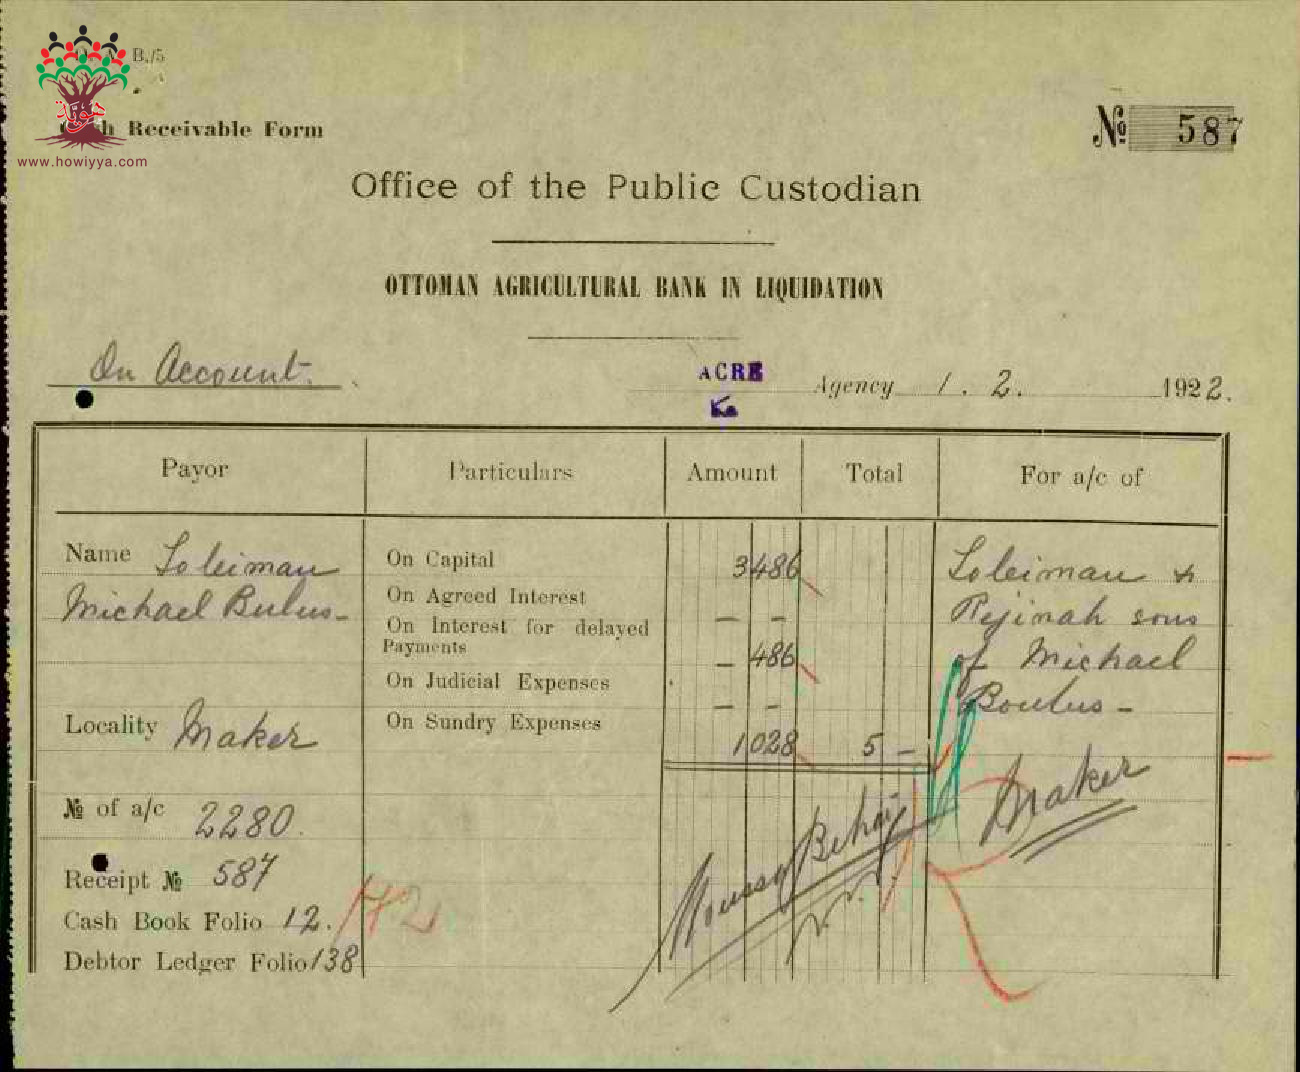 B./5
هوية
www.howiyya.com
Cash Receivable Form
№ 587
Office of the Public Custodian
OTTOMAN AGRICULTURAL BANK IN LIQUIDATION
On Account.
ACRE Agency 1. 2. 1922.
Payor Particulars Amount Total For a/c of
Name Soleiman
Michael Bulus-
Locality Maker
№ of a/c 2280.
Receipt № 587
Cash Book Folio 12.
Debtor Ledger Folio 138
On Capital 3486
On Agreed Interest
On Interest for delayed
Payments
On Judicial Expenses
On Sundry Expenses
— —
— 486
— —
1028 5 —
Soleiman &
Rejinah sons
of Michael
Boulus -
Maker
142